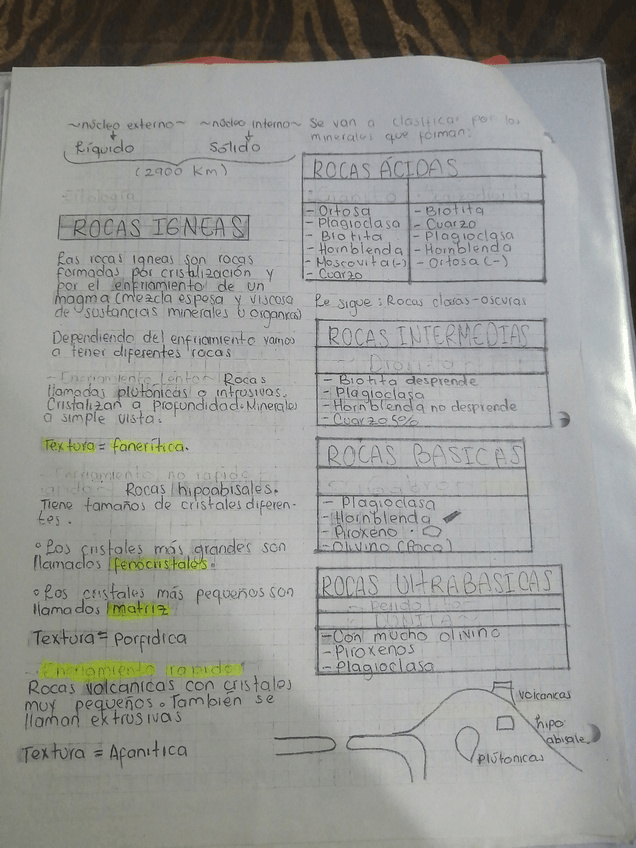 ~núcleo externo~ ~núcleo interno~
Líquido Sólido
(2900 Km)
ROCAS IGNEAS
Las rocas igneas son rocas
formadas por cristalización y
por el enfriamiento de un
magma (mezcla espesa y viscosa
de sustancias minerales u organicas)
Dependiendo del enfriamiento vamos
a tener diferentes rocas
- Enfriamiento lento - Rocas
llamadas plutónicas o intrusivas.
Cristalizan a profundidad. Minerales
a simple vista.
Textura = fanerítica.
Enfriamiento no rapido
Rocas hipoabisales.
Tiene tamaños de cristales diferen-
tes.
° Los cristales más grandes son
llamados fenocristales.
° Los cristales más pequeños son
llamados matriz
Textura = Porfidica
- Enfriamiento rapido
Rocas volcanicas con cristales
muy pequeños. También se
llaman extrusivas
Textura = Afanitica
Se van a clasificar por los
minerales que forman:
ROCAS ÁCIDAS
- Ortosa - Biotita
- Plagioclasa - Cuarzo
- Biotita - Plagioclasa
- Hornblenda - Hornblenda
- Moscovita (-) - Ortosa (-)
- Cuarzo
Le sigue: Rocas claras-oscuras
ROCAS INTERMEDIAS
- Biotita desprende
- Plagioclasa
- Hornblenda no desprende
- Cuarzo 5%
ROCAS BASICAS
- Plagioclasa
- Hornblenda
- Piroxeno
- Olivino (Poco)
ROCAS UltRABASICAS
- Con mucho olivino
- Piroxenos
- Plagioclasa
volcanicas
hipo
abisale
plutonicas